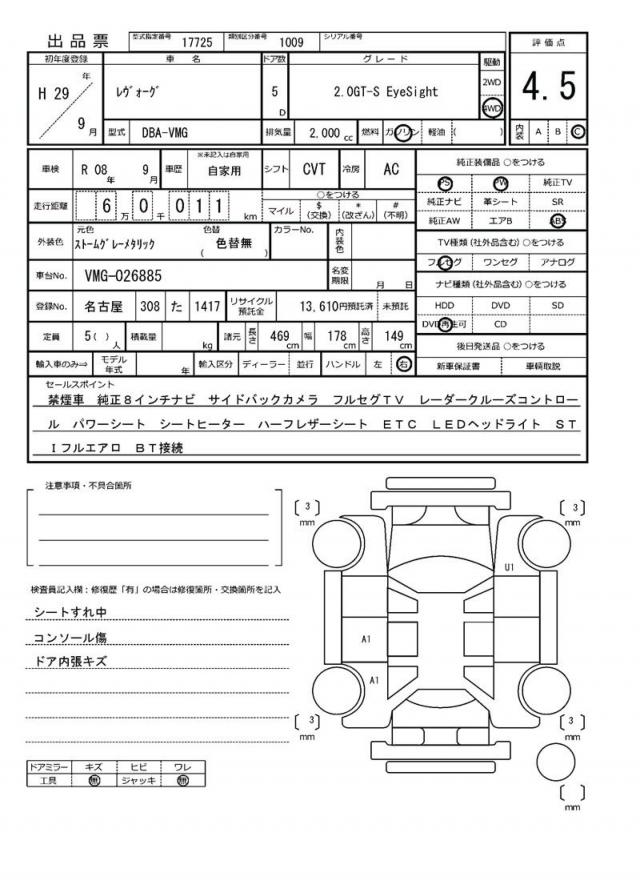 出品票 型式指定番号 17725 類別区分番号 1009 シリアル番号
初年度登録 車名 ドア数 グレード 駆動 評価点
H 29 年 9 月 ﾚｳﾞｫｰｸﾞ 5 D 2.0GT-S EyeSight 2WD 4WD 4.5
型式 DBA-VMG 排気量 2,000 cc 燃料 ガソリン 軽油 ( ) 内装 A B C
車検 R 08 年 9 月 車歴 ※未記入は自家用 自家用 シフト CVT 冷房 AC
走行距離 6 万 0 千 0 1 1 km ○をつける
マイル $ (交換) * (改ざん) # (不明)
外装色 元色 ｽﾄｰﾑｸﾞﾚｰﾒﾀﾘｯｸ 色替 ( 色替無 ) カラーNo. 内装色
車台No. VMG-026885 名変期限 月 日
登録No. 名古屋 308 た 1417 リサイクル預託金 13,610円預託済 未預託
定員 5( ) 人 積載量 kg 諸元 長さ 469 cm 幅 178 cm 高さ 149 cm
輸入車のみ⇒ モデル年式 年 輸入区分 ディーラー 並行 ハンドル 左 右
純正装備品 ○をつける
PS PW 純正TV
純正ナビ 革シート SR
純正AW エアB ABS
TV種類 (社外品含む) ○をつける
フルセグ ワンセグ アナログ
ナビ種類 (社外品含む) ○をつける
HDD DVD SD
DVD再生可 CD
後日発送品 ○をつける
新車保証書 車輌取説
セールスポイント
禁煙車 純正8インチナビ サイドバックカメラ フルセグTV レーダークルーズコントロー
ル パワーシート シートヒーター ハーフレザーシート ETC LEDヘッドライト ST
Iフルエアロ BT接続
注意事項・不具合箇所
検査員記入欄：修復歴「有」の場合は修復箇所・交換箇所を記入
シートすれ中
コンソール傷
ドア内張キズ
ドアミラー キズ ヒビ ワレ
工具 無 ジャッキ 無
3 mm
3 mm
U1
A1
A1
3 mm
3 mm
mm